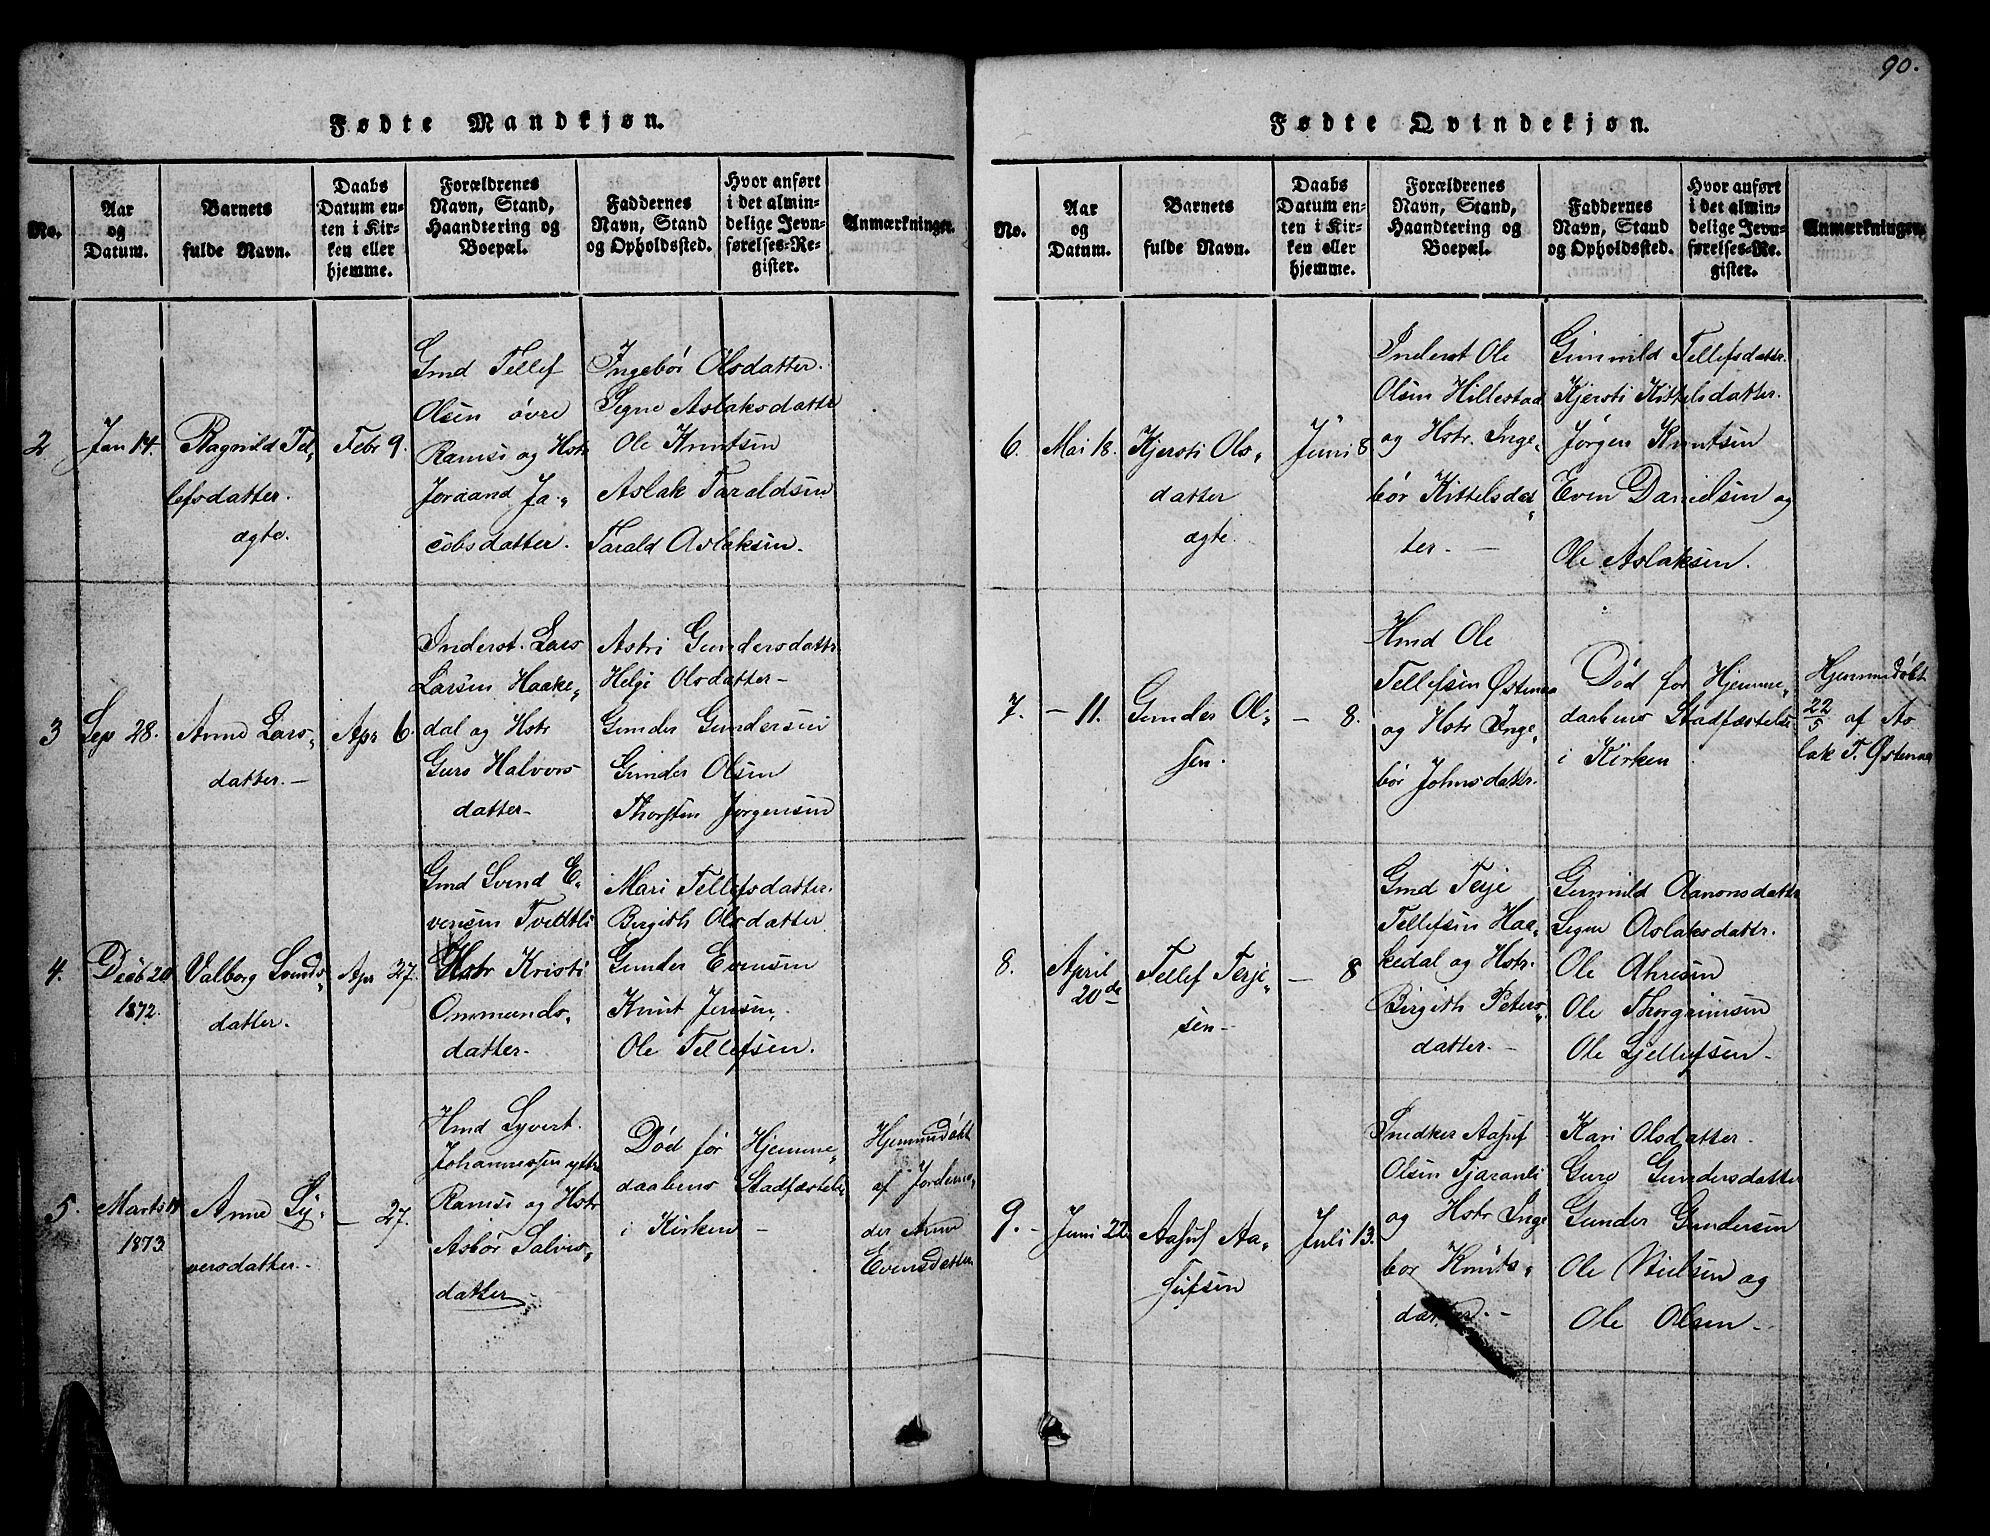 90.
Fødte Mandkjøn.
No.
Aar
og
Datum.
Barnets
fulde Navn.
Daabs
Datum en-
ten i Kir-
ken eller
hjemme.
Forældrenes
Navn, Stand,
Haandtering og
Boepæl.
Faddernes
Navn, Stand
og Opholdssted.
Hvor anført
i det almin-
delige Jevn-
førelses-Re-
gister.
Anmærkninger.
2
Jan 14.
Ragnild Tel-
lefsdatter.
ægte.
Febr 9.
Gmd Tellef
Olsen øvre
Ramsi og Hstr
Joraand Ja-
cobsdatter.
Ingebór Olsdatter.
Segne Aslaksdattr
Ole Knutsen
Aslak Taraldsen
Tarald Aslaksen.
3
Sep 28.
Anne Lars-
datter.-
Apr 6.
Inderst. Lars
Larsen Haake-
dal og Hstr
Guro Halvors
datter-
Astri Gundersdattr
Helge Olsdatter-
Gunder Gundersen
Gunder Olsen
Thorsten Jørgensen
4.
Decb 20
1872.
Valborg Svends-
datter.
Apr 27.
Gmd Svend E-
vensen Tveitli
Hstr Kristi
Ommunds-
datter-
Mari Tellefsdatter.
Birgith Olsdatter
Gunder Evensen
Knut Jensen.
Ole Tellefsen.
5.
Marts 14
1873.
Anne Sy-
versdatter.-
- 27.
Hmd Syvert.
Johannessen ytre
Ramsi og Hstr
Asbór Salves-
datter
Død før Hjemme-
daabens Stadfæstelse
i Kirken -
Hjemmedøbt
af Jordemo-
der Anne
Evensdatter
Fødte Qvindekjøn.
No.
Aar
og
Datum.
Barnets
fulde Navn.
Daabs
Datum en-
ten i Kir-
ken eller
hjemme.
Forældrenes
Navn, Stand,
Haandtering og
Boepæl.
Faddernes
Navn, Stand
og Opholdssted.
Hvor anført
i det almin-
delige Jevn-
førelses-Re-
gister.
Anmærkninger.
6.
Mai 18.
Kjersti Ols-
datter
ægte.
Juni 8
Inderst Ole
Olsen Hillestad
og Hstr. Inge-
bór Kittelsdat-
ter. -
Gunnild Tellefsdattr.
Kjersti Kittelsdatter.
Jørgen Knutsen
Even Danielsen og
Ole Aslaksen.
7.
- 11.
Gunder Ol-
sen.
- 8.
Hmd Ole
Tellefsen Østenaa
og Hstr Inge-
bór Johnsdatter.
Død før Hjemme-
daabens Stadfæstelse
i Kirken
Hjemmedøbt
22/5 af As
lak T. Østenaa
8.
April
20de
Tellef Terje-
sen-
- 8
Gmd Terje
Tellefsen Haa-
kedal og Hstr.
Birgith Peters-
datter. -
Gunnild Aanonsdattr
Signe Aslaksdattr.
Ole Ahresen
Ole Thorgrimsen
Ole Gjellufsen-
9. -
Juni 22.
Aasuf Aa-
sufsen
Juli 13.
Snedker Aasuf
Olsen Tjaranli
og Hstr Inge
bor Knuts-
datter. -
Kari Olsdatter.
Guro Gundersdatter
Gunder Gundersen
Ole Nielsen og
Ole Olsen-